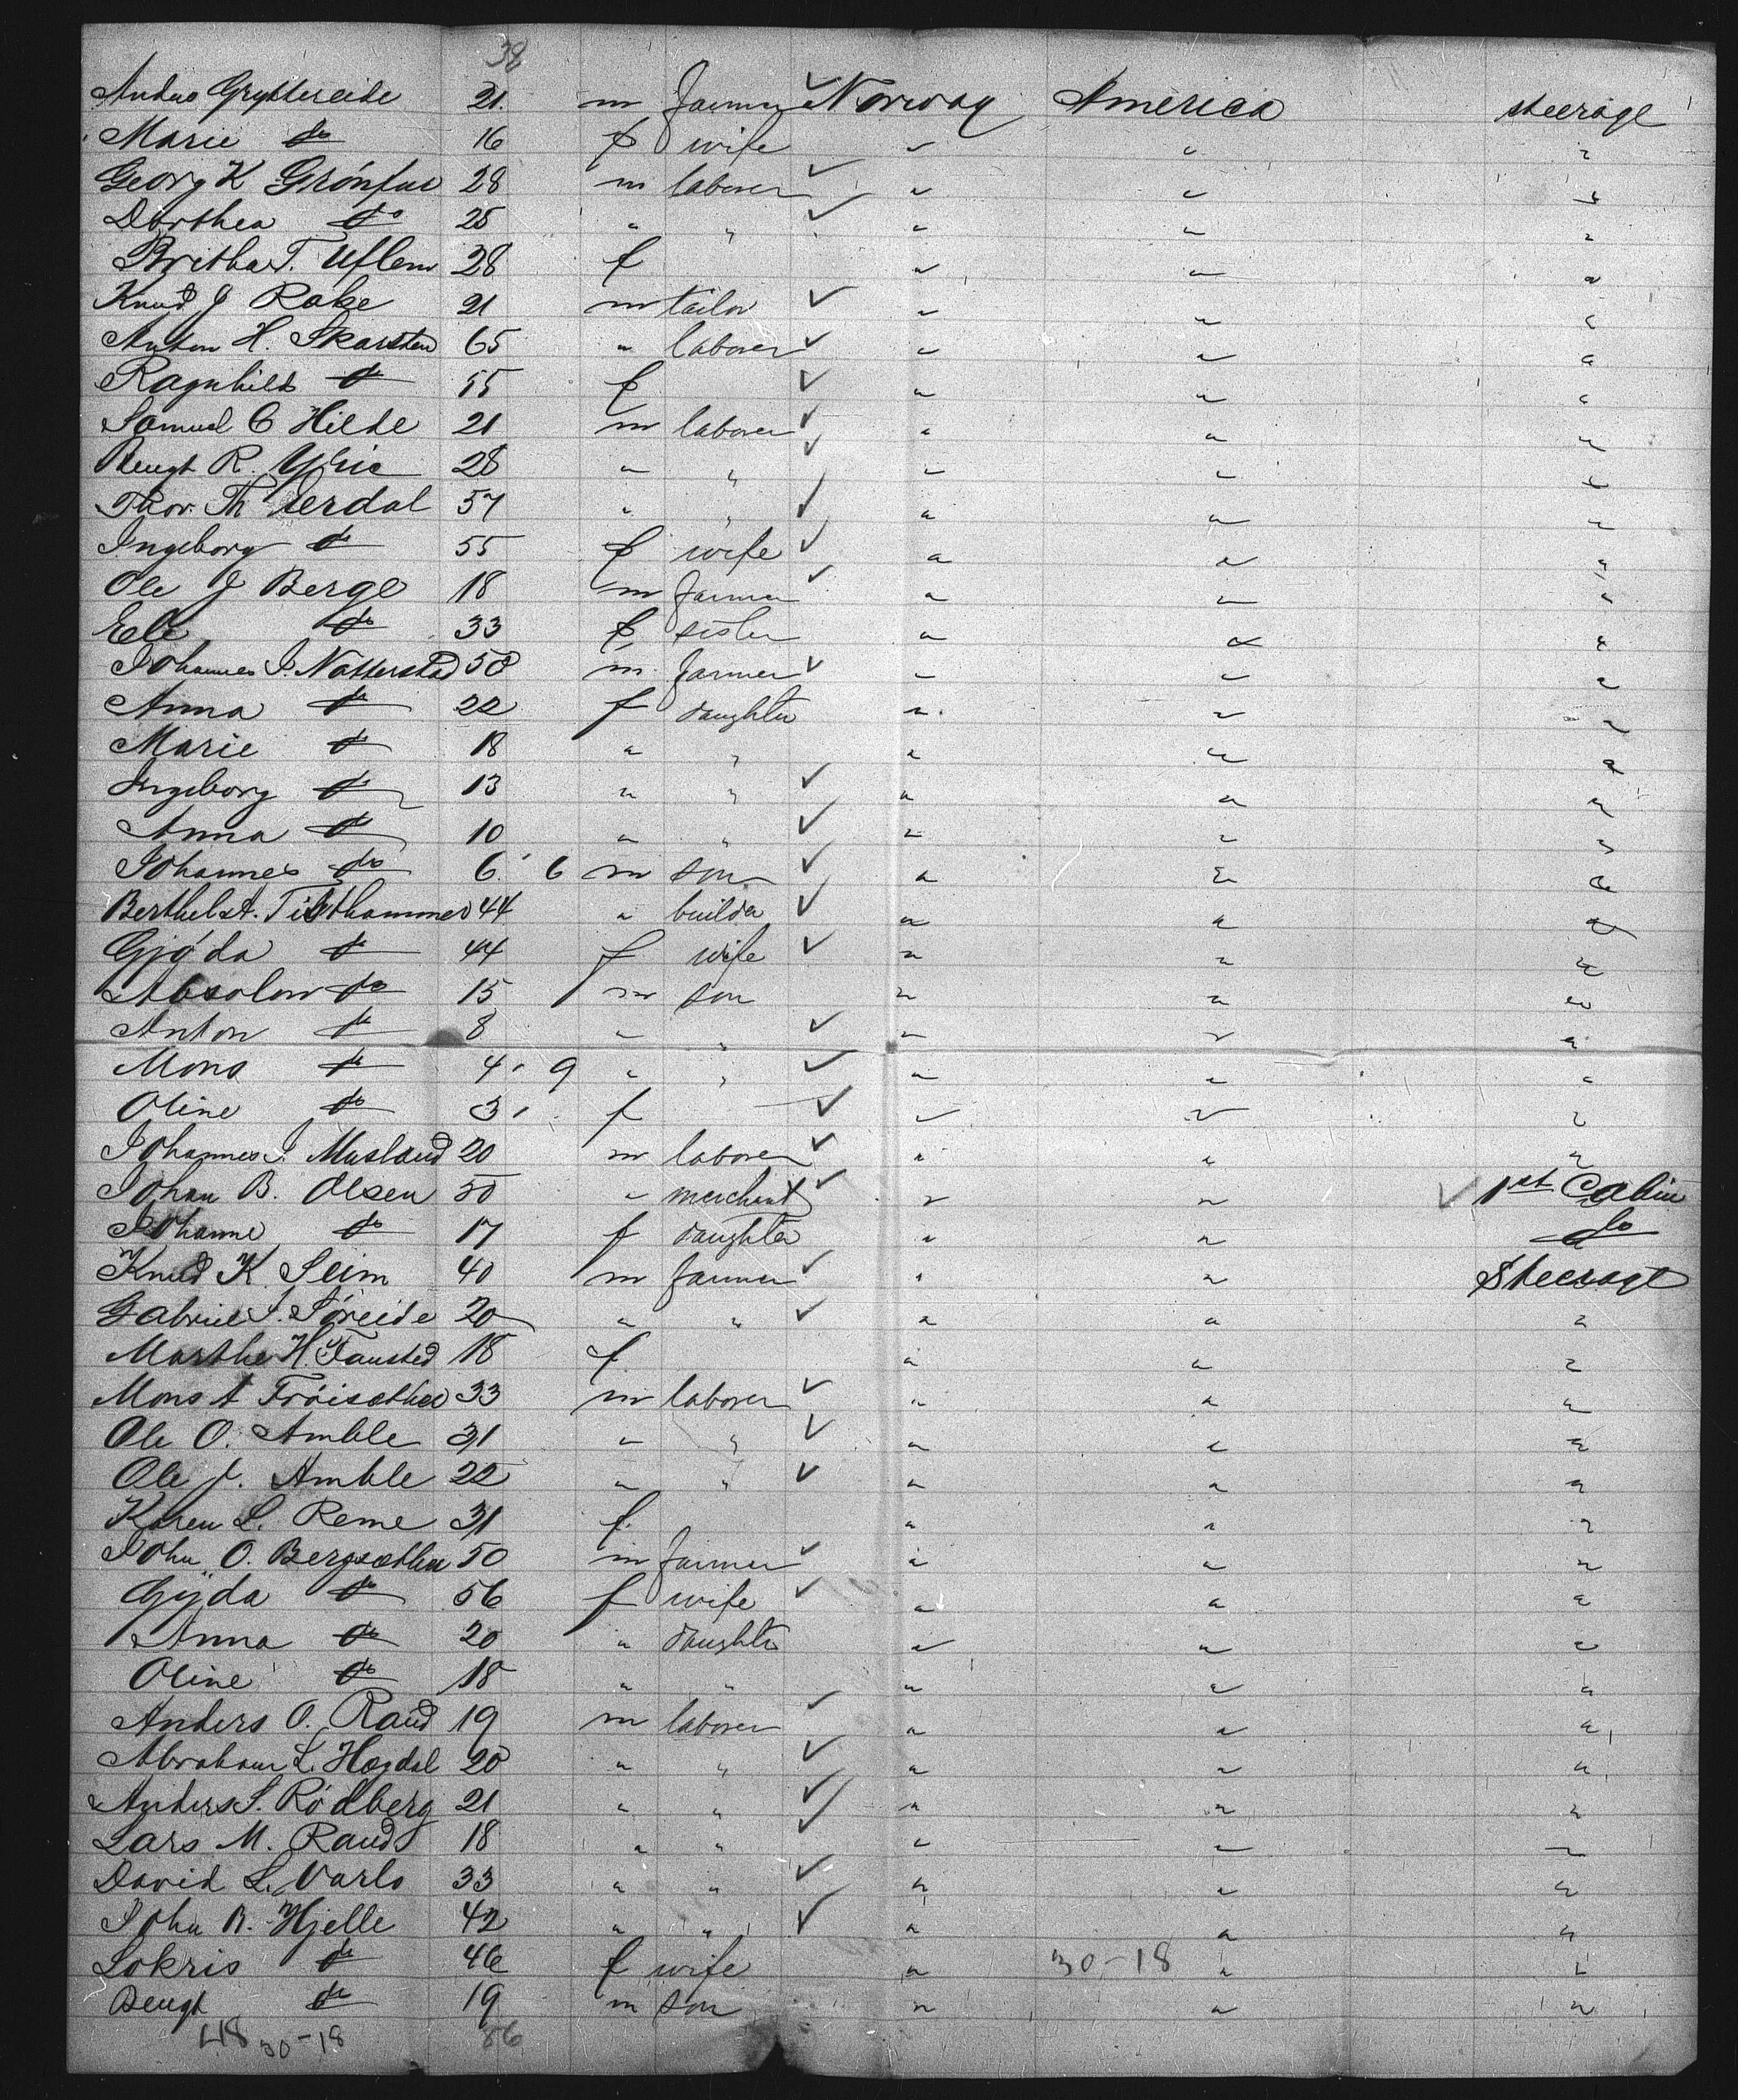 38
Andas Gryttereide 21. m farmer Norway America steerage
Marie do 16 f wife " " "
Georg K Grónfur 28 m laborer " " "
Dorthea do 25 " " " " "
Britha T. Uflem 28 f " " "
Knud J Rake 21 m tailor " " "
Anton H. Skarsten 65 " laborer " " "
Ragnhild do 55 f " " "
Samuel O Hilde 21 m laborer " " "
Bengt R. 28 " " " " "
Thor. Th 57 " " " " "
Ingeborg do 55 f wife " " "
Ole J Berge 18 m farmer " " "
Eli do 33 f sister " " "
Johannes J. Natterstad 58 m farmer " " "
Anna do 22 f daughter " " "
Marie do 18 " " " " "
Ingeborg do 13 " " " " "
Anna do 10 " " " " "
Johannes do 6. 6 m son " " "
Berthel A. 44 " builder " " "
Gjóda do 44 f wife " " "
Absolom do 15 m son " " "
Anton do 8 " " " " "
Mons do 4 9 " " " " "
Oline do 3 f " " "
Johannes J. Musland 20 m laborer " " "
Johan B. Olsen 50 " merchant " " 1st Cabin
Johanne do 17 f daughter " " do
Knud K. Seim 40 m farmer " " Steerage
Gabriel S. Söreide 20 " " " " "
Marthe H. Fausted 18 f " " "
Mons A Tróisether 33 m laborer " " "
Ole O. Amble 31 " " " " "
Ole J. Amble 22 " " " " "
Karen L. Reme 31 f. " " "
John O. Bergsether 50 m farmer " " "
Gÿda do 56 f wife " " "
Anna do 20 " daughter " " "
Oline do 18 " " " " "
Anders O. Raud 19 m laborer " " "
Abraham L. Hogdal 20 " " " " "
Anders S. Ródberg 21 " " " " "
Lars M. Raud 18 " " " " "
David L. Varlo 33 " " " " "
John R. Hjelle 42 " " " " "
Lokris do 46 f wife " 30-18 " "
Bengt do 19 m son " " "
48 30-18 86